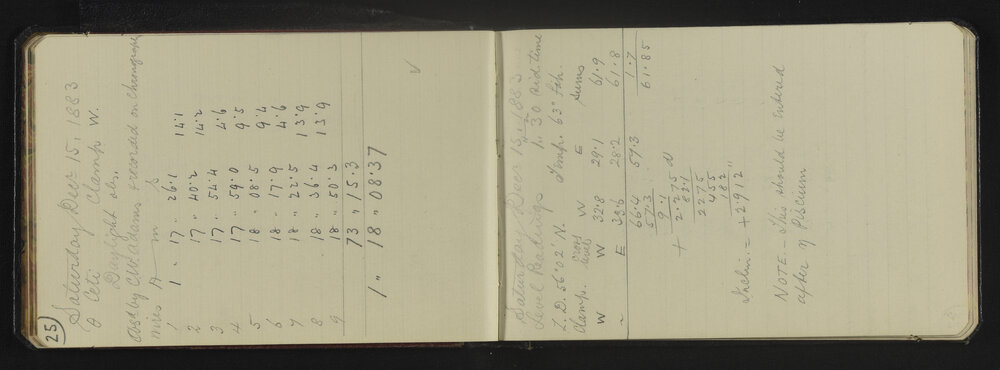 25
Saturday Decr 15, 1883
θ Ceti Clamp W.
Daylight obs.
Obsd by C.W. Adams & recorded on chronograph
Wires h m s
1 1 " 17 " 26.1 14.1
2 17 " 40.2 14.2
3 17 " 54.4 4.6
4 17 " 59.0 9.5
5 18 " 08.5 9.4
6 18 " 17.9 4.6
7 18 " 22.5 13.9
8 18 " 36.4 13.9
9 18 " 50.3
73 " 15.3
1 " 18 " 08.37
Saturday Decr 15, 1883
Level Readings 1h. 30 Sid. time
Z.D. 56° 02' N. Temp. 63° Fah.
Clamp. levels W E Sums
W W 32.8 29.1 61.9
" E 33.6 28.2 61.8
66.4 57.3 1.7
57.3 61.85
9.1
+ 2.275 N
82.1
2275
455
182
Inclin. = + 2.912"
NOTE - This should be entered
after η Piscium